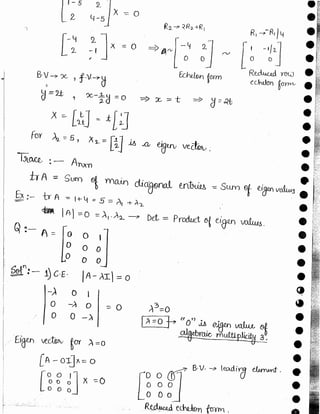 [1-5 2
2 4-5] X = 0
R2 → 2R2+R1
R1 → -R1/4
[-4 2
2 -1] X = 0 ⇒ A~ [-4 2
0 0] ~ [1 -1/2
0 0]
Echelon form
Reduced row
echelon form
B.V → x , f.V → y
y = 2t , x - 1/2 y = 0 ⇒ x = t ⇒ y = 2t
X = [t
2t] = t [1
2]
for λ2 = 5, X2 = [1
2] is a eigen vector.
Trace :- Anxn
tr A = Sum of main diagonal entries = Sum of eigen values
Ex:- tr A = 1+4 = 5 = λ1 + λ2
|A| = 0 = λ1.λ2 → Det = Product of eigen values.
Q:- A = [0 0 1
0 0 0
0 0 0]
Soln:- 1) C.E. |A-λI| = 0
|-λ 0 1
0 -λ 0
0 0 -λ| = 0
λ³=0
λ=0 → "0" is eigen value of
algebraic multiplicity 3.
Eigen vector for λ=0
[A - 0I]X = 0
[0 0 1
0 0 0
0 0 0] X = 0
[0 0 1
0 0 0
0 0 0]
B.V. → leading element.
Reduced echelon form.